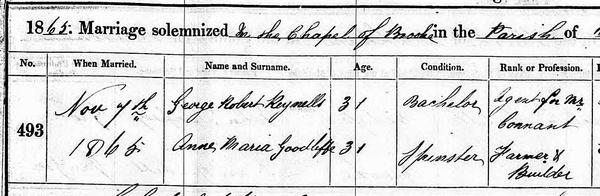 1865. Marriage solemnized In the Chapel of Brooke in the Parish of
No. When Married. Name and Surname. Age. Condition. Rank or Profession.
493 Nov 7th 1865 George Robert Reynells 31 Bachelor Agent for Mr. Connant
Anne Maria Goodliffe 31 Spinster Farmer & Builder